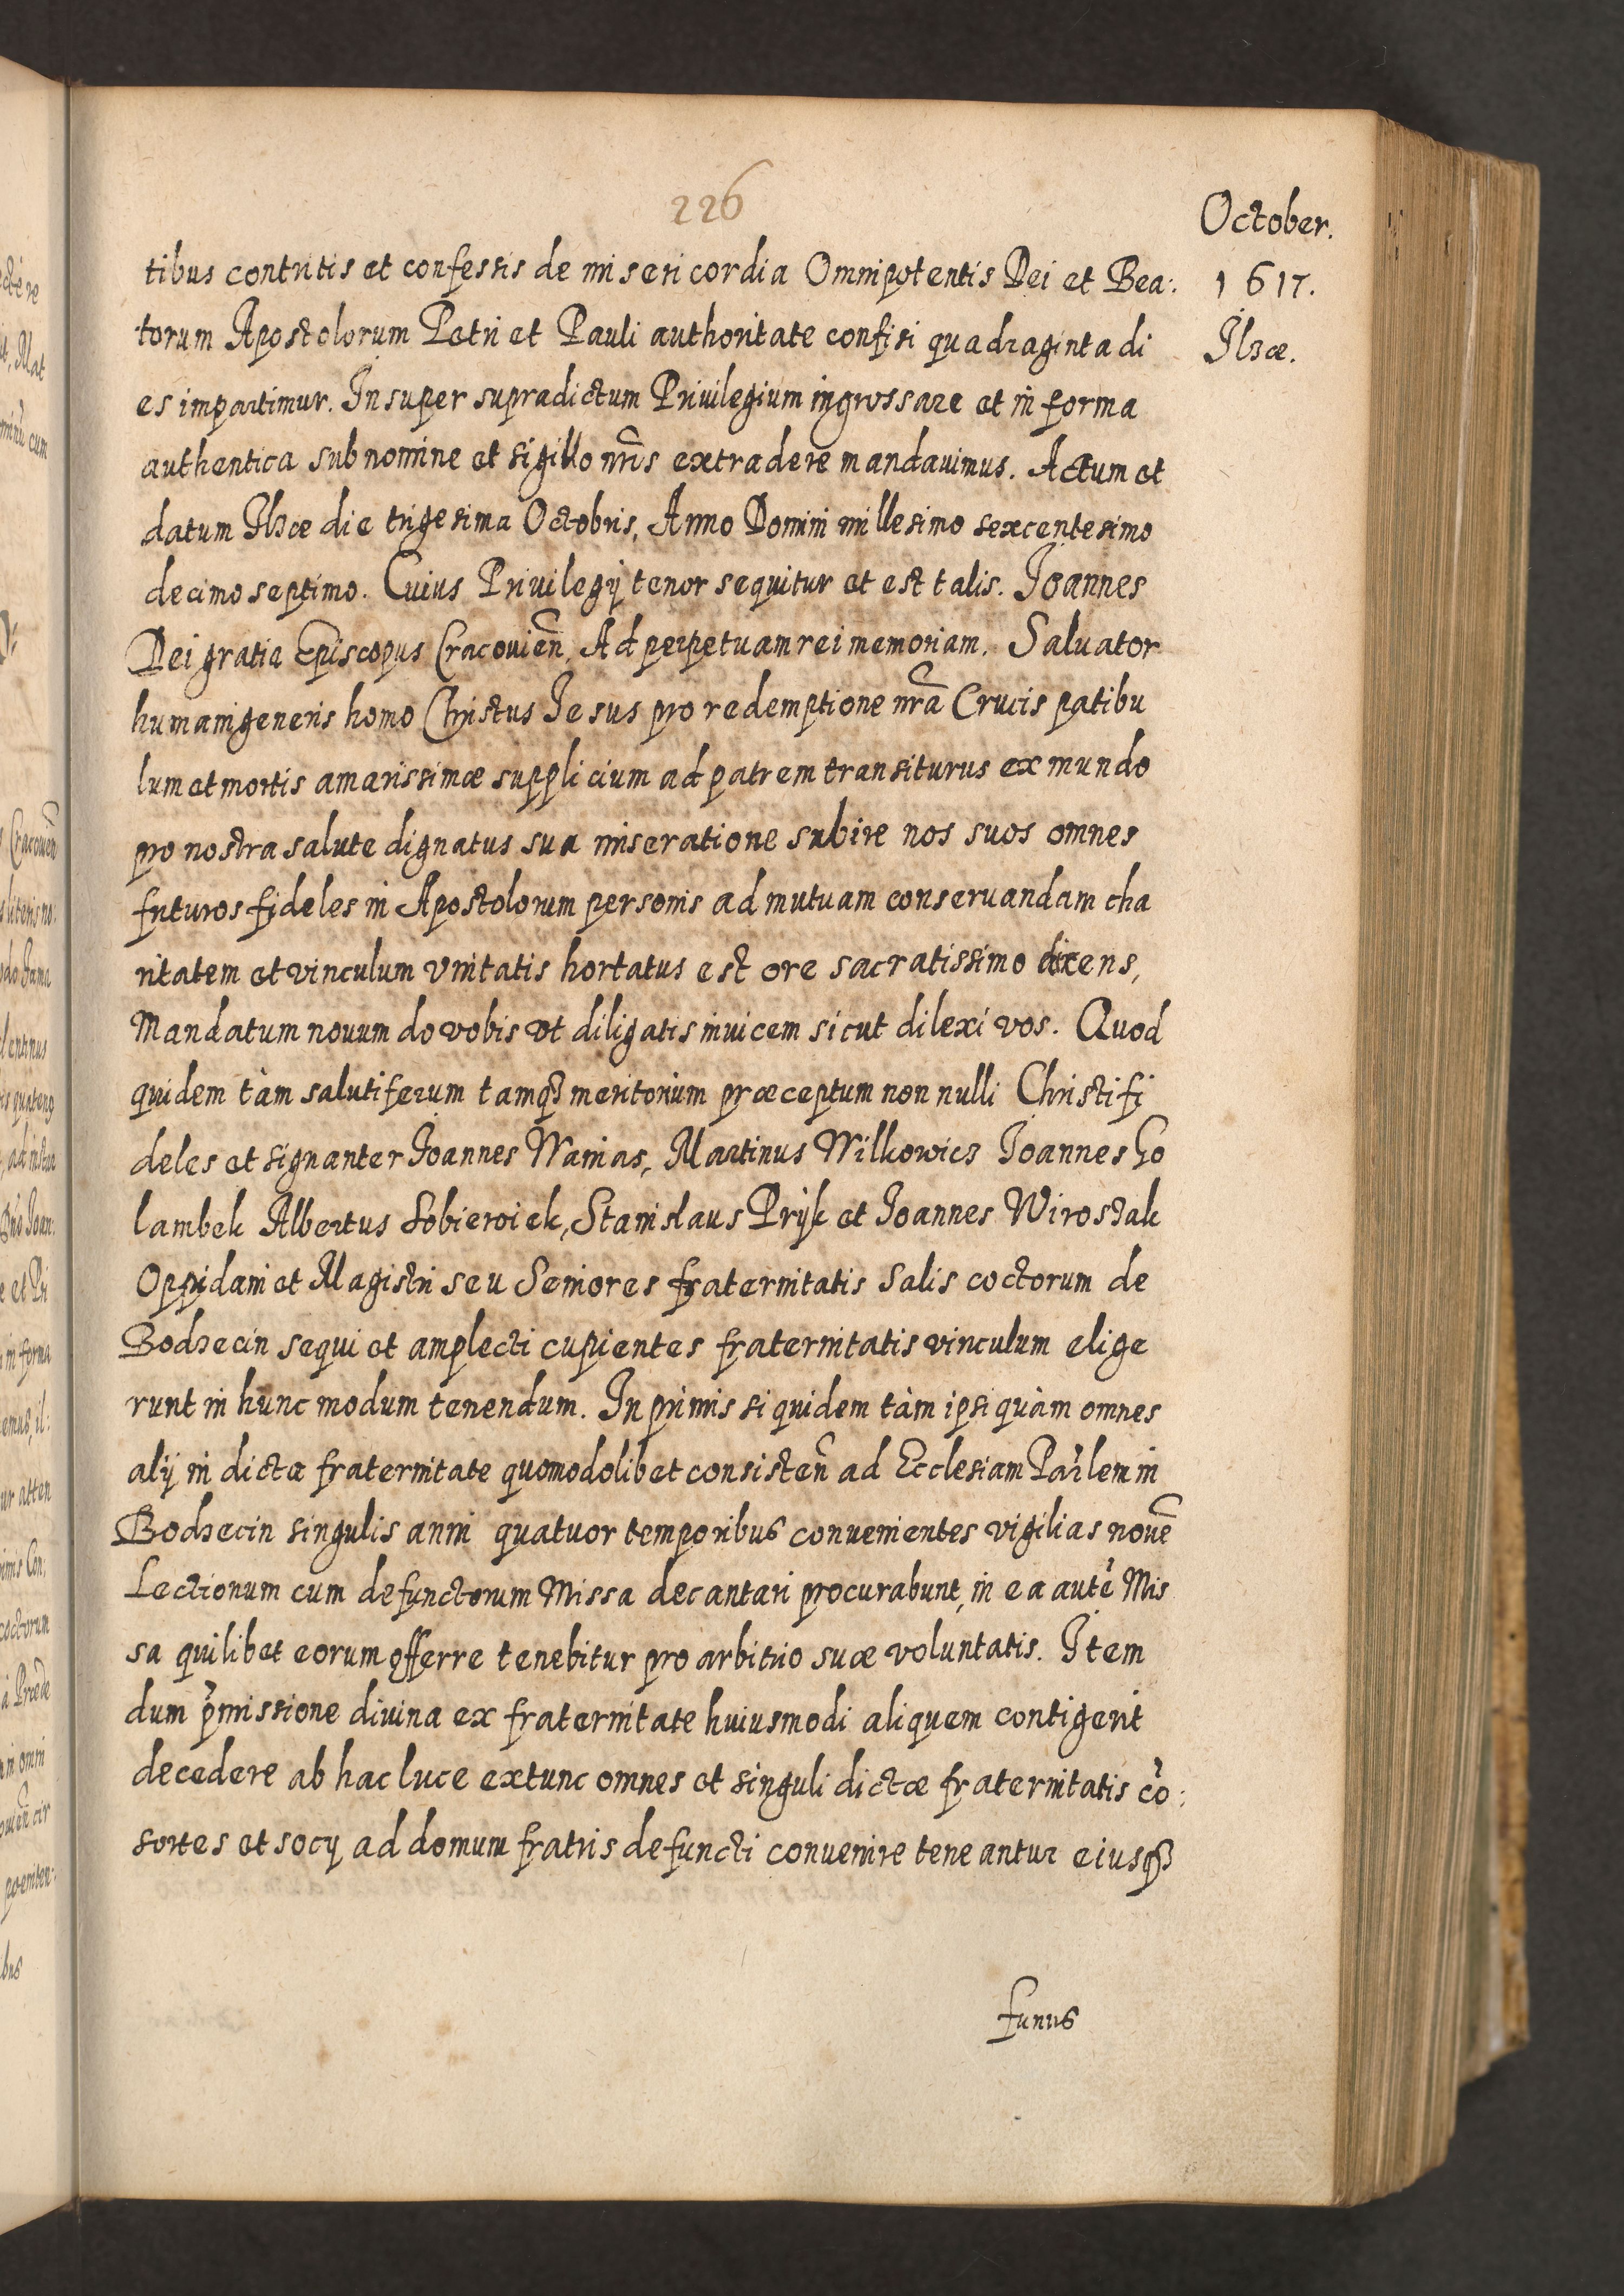 226
October.
1617.
Ilzæ.
tibus contritis et confessis de misericordia Omnipotentis Dei et Bea:
torum Apostolorum Petri et Pauli authoritate confisi quadraginta di
es impartimur. Insuper supradictum Priuilegium ingrossare et in forma
authentica sub nomine et sigillo nr̃is extradere mandauimus. Actum et
datum Ilzæ die trigesima Octobris, Anno Domini millesimo sexcentesimo
decimo septimo. Cuius Priuilegij tenor sequitur et est talis. Ioannes
Dei gratia Episcopus Cracouien̄. Ad perpetuam rei memoriam. Saluator
humani generis homo Christus Iesus pro redemptione nr̃a Crucis patibu
lum et mortis amarissimæ supplicium ad patrem transiturus ex mundo
pro nostra salute dignatus sua miseratione subire nos suos omnes
futuros fideles in Apostolorum personis ad mutuam conseruandam cha
ritatem et vinculum vnitatis hortatus est ore sacratissimo dicens,
Mandatum nouum do vobis vt diligatis inuicem sicut dilexi vos. Quod
quidem tàm salutiferum tamqȝ meritorium præceptum non nulli Christifi
deles et signanter Ioannes Wanias, Martinus Wilkowicz Ioannes Go
lambek Albertus Sobierviek, Stanislaus Pryk et Ioannes Wirostak
Oppidani et Magistri seu Seniores fraternitatis Salis coctorum de
Bodzecin sequi et amplecti cupientes fraternitatis vinculum elige
runt in hunc modum tenendum. In primis siquidem tàm ipsi quàm omnes
alij in dicta fraternitate quomodolibet consisten̄ ad Ecclesiam Par̄lem in
Bodzecin singulis anni quatuor temporibus conuenientes vigilias nouē
Lectionum cum defunctorum Missa decantari procurabunt, in ea autē Mis
sa quilibet eorum offerre tenebitur pro arbitrio suæ voluntatis. Item
dum p̄missione diuina ex fraternitate huiusmodi aliquem contigerit
decedere ab hac luce extunc omnes et singuli dictæ fraternitatis cō:
sortes et socij ad domum fratris defuncti conuenire teneantur eiusqȝ
funus